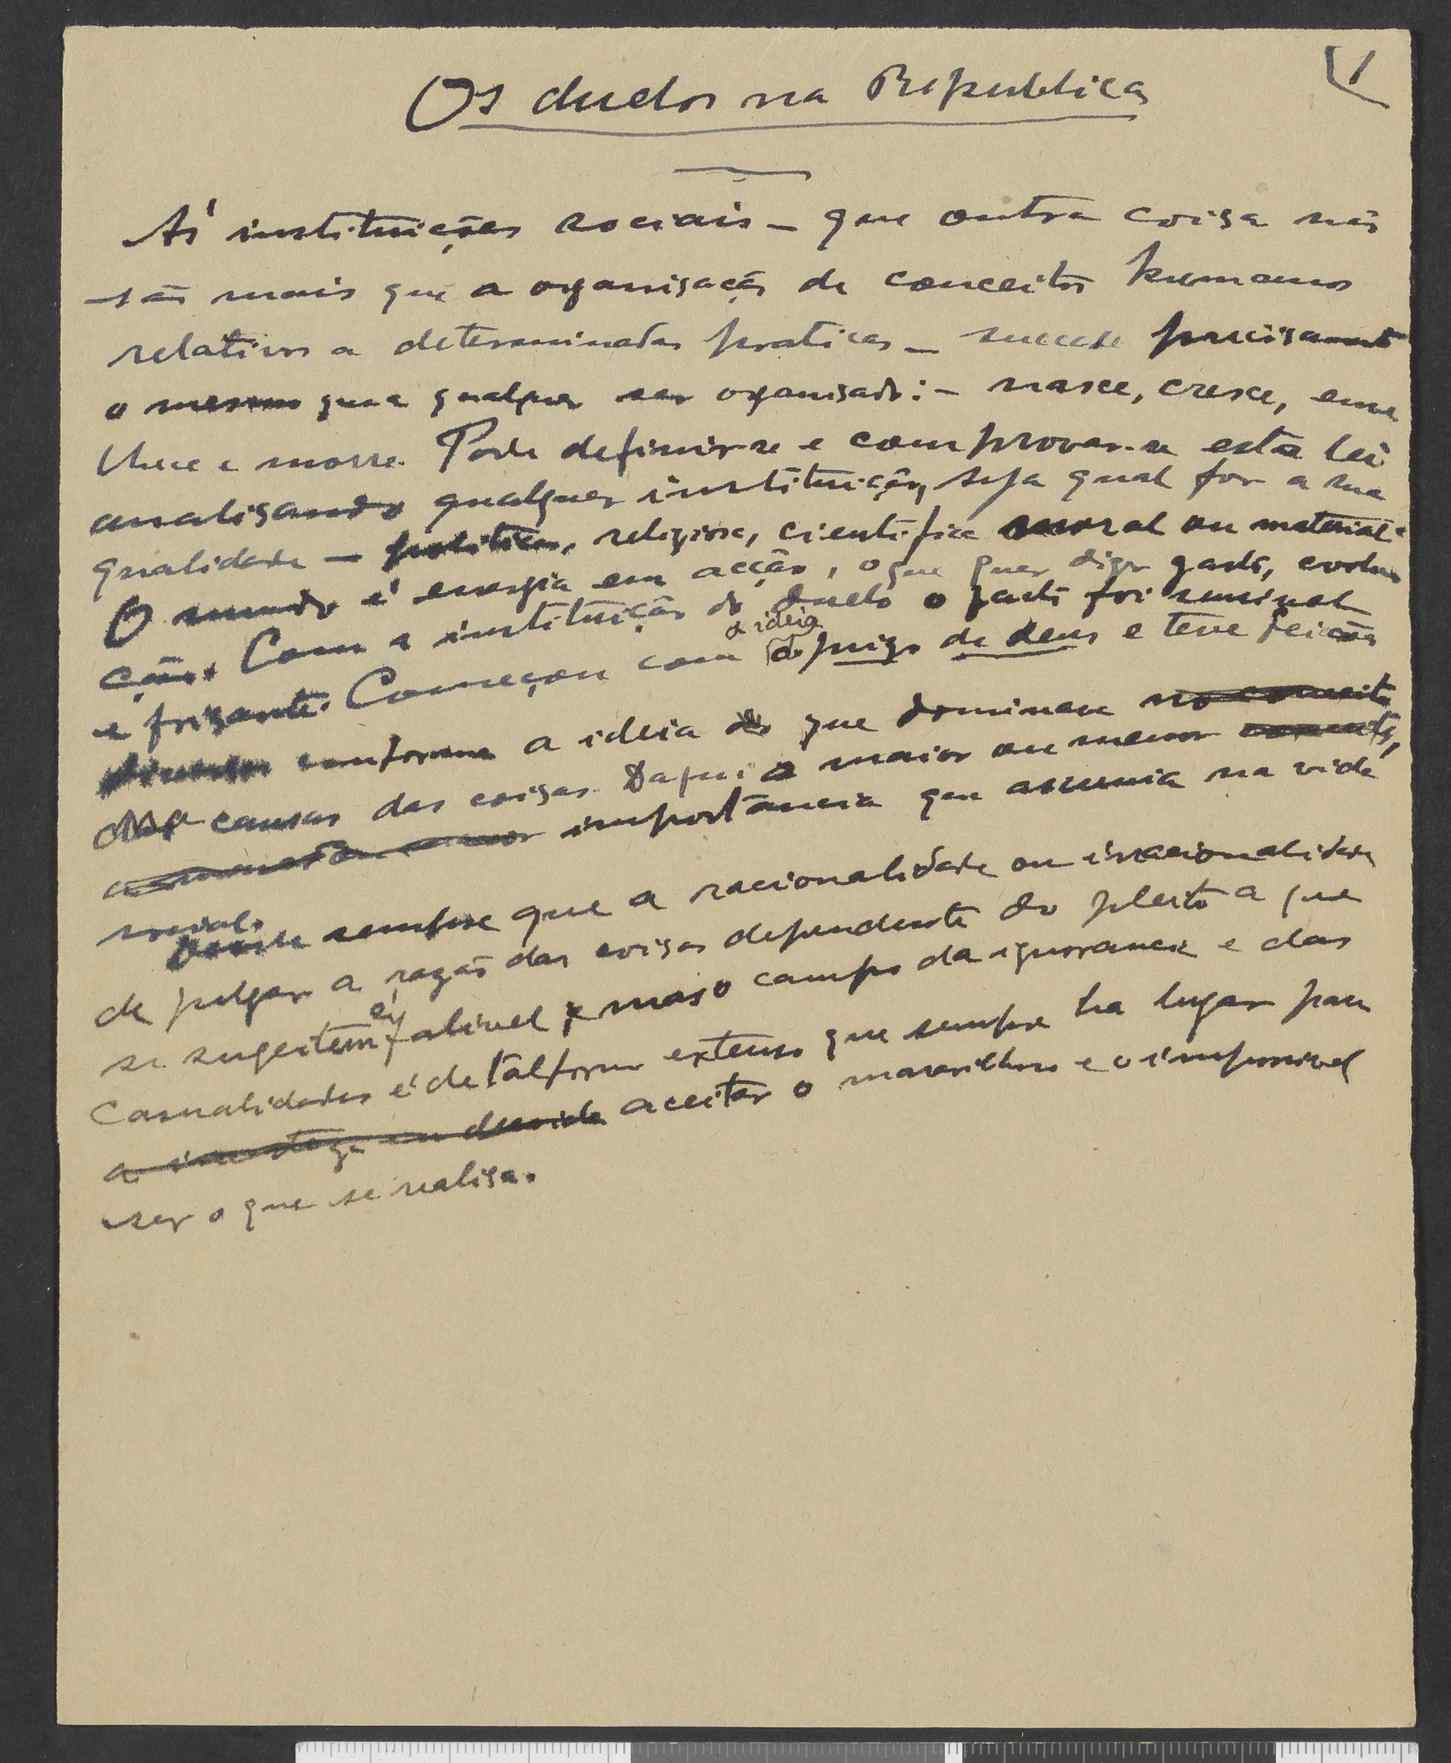 1
Os duelos na Republica
Ás instituições sociais – que outra coisa não
são mais que a organisação de conceitos humanos
relativos a determinadas praticas – succede precisamente
o mesmo que a qualquer ser organisado: – nasce, cresce, enve
lhece e morre. Pode definir-se e comprovar-se esta lei
analisando qualquer instituição, seja qual for a sua
qualidade – politica, religiosa, cientifica moral ou material.
O mundo é energia em acção, o que quer dizer gasto, evolu
ção. Com a instituição do duelo o gasto foi
e frizante. Começou com a ideia do juizo de deus e teve feição
conforme a ideia que dominava
causas das coisas. Daqui a maior ou menor
importancia que assumia na vida
social.
sempre que a racionalidade ou irracionalidade
de julgar a razão das coisas dependente do pleito a que
se sugeitem é falivel, mas o campo da ignorancia e das
casualidades é de tal forma extenso que sempre ha lugar para
aceitar o maravilhoso e o impossivel
ser o que se realisa.